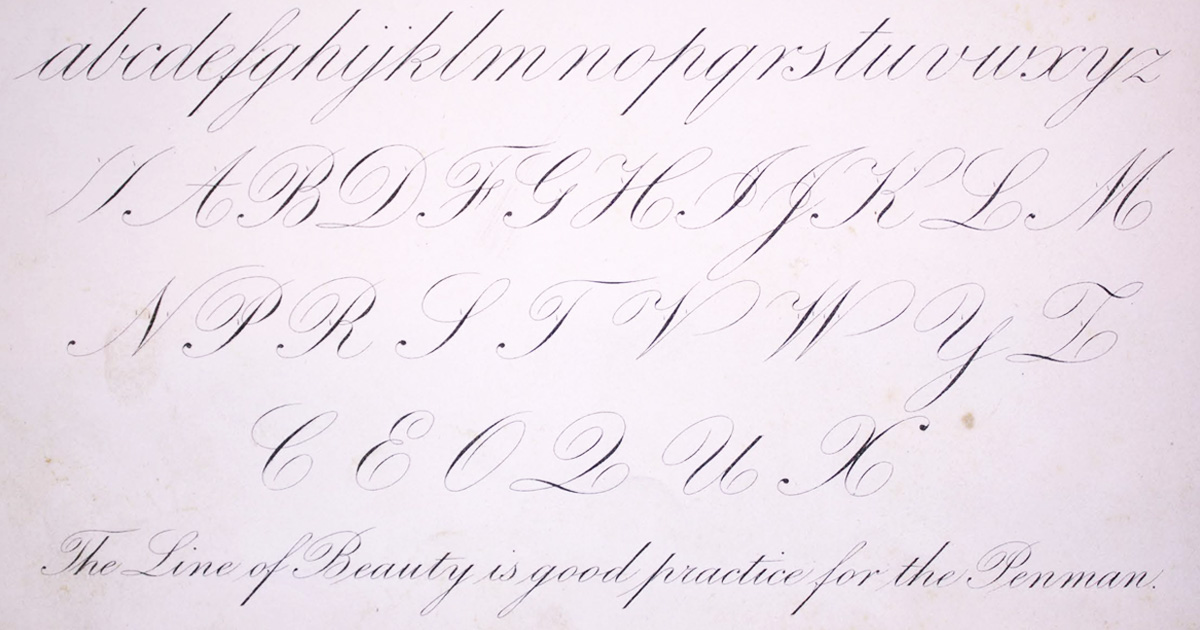 abcdefghijklmnopqrstuvwxyz
A B D F G H I J K L M
N P R S T V W Y Z
C E O Q U X
The Line of Beauty is good practice for the Penman.